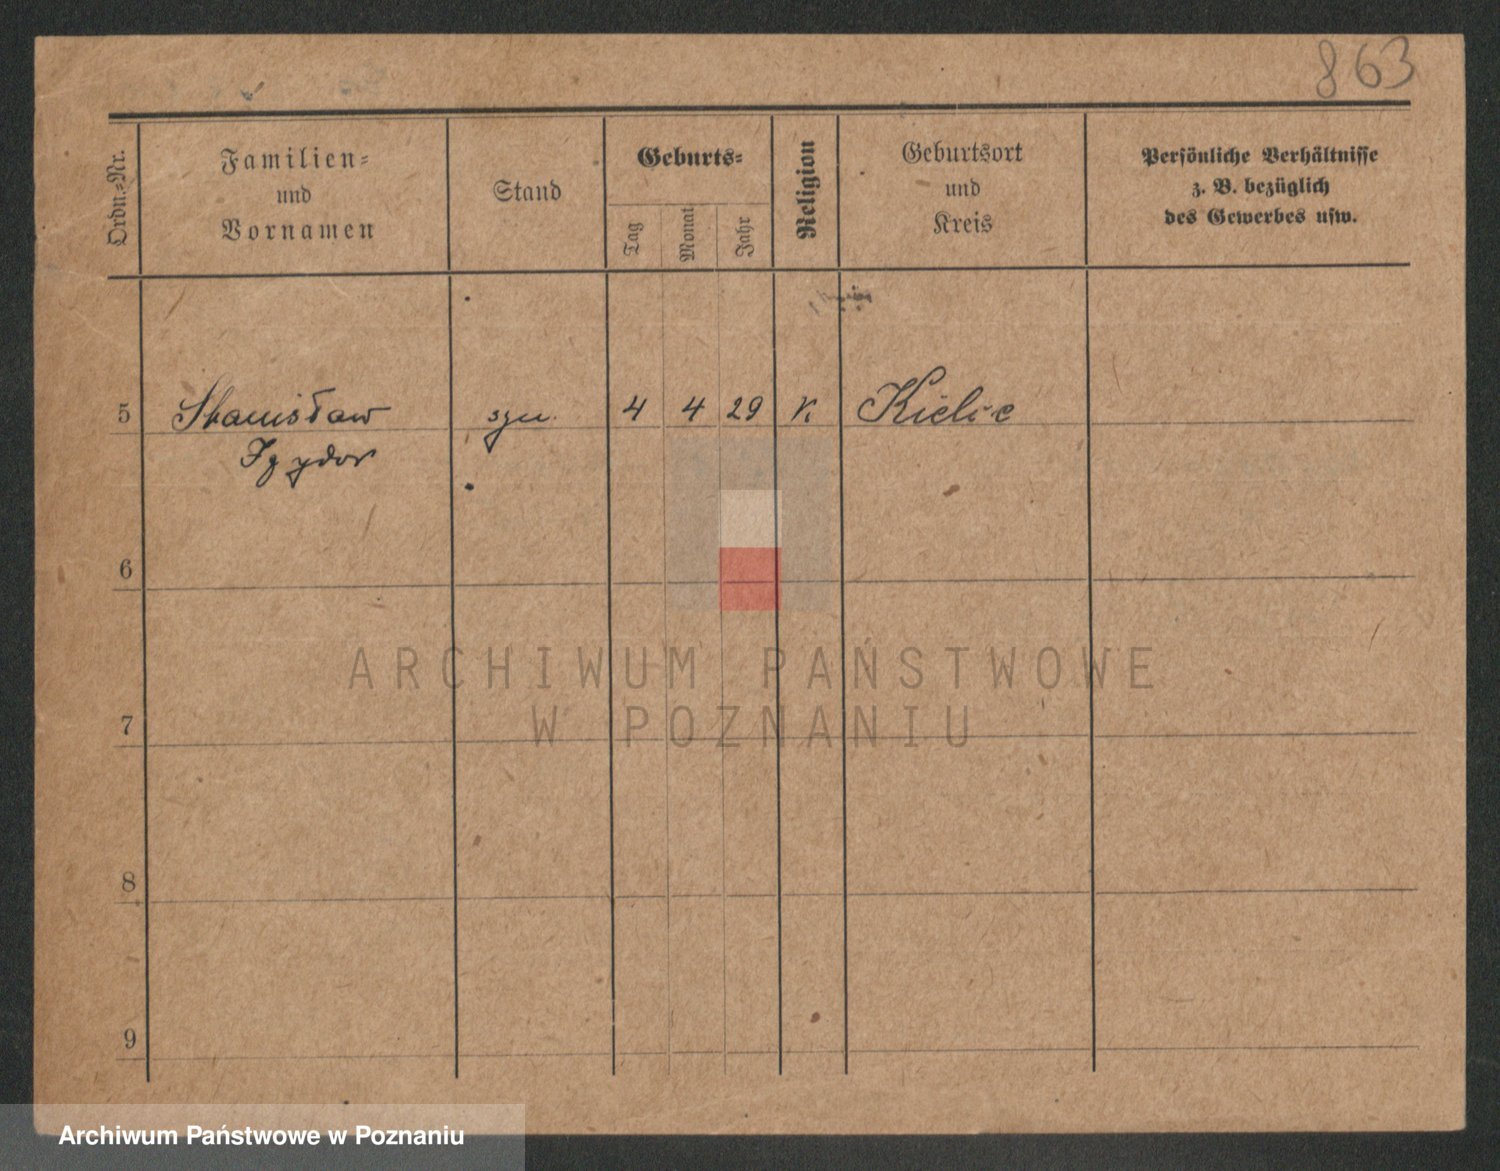 863
Ordn.-Nr.
Familien-
und
Vornamen
Stand
Geburts-
Tag
Monat
Jahr
Religion
Geburtsort
und
Kreis
Persönliche Verhältnisse
z. B. bezüglich
des Gewerbes usw.
5 Stanisław syn 4 4 29 K Kielce
Izydor
6
ARCHIWUM PAŃSTWOWE
W POZNANIU
7
8
9
Archiwum Państwowe w Poznaniu